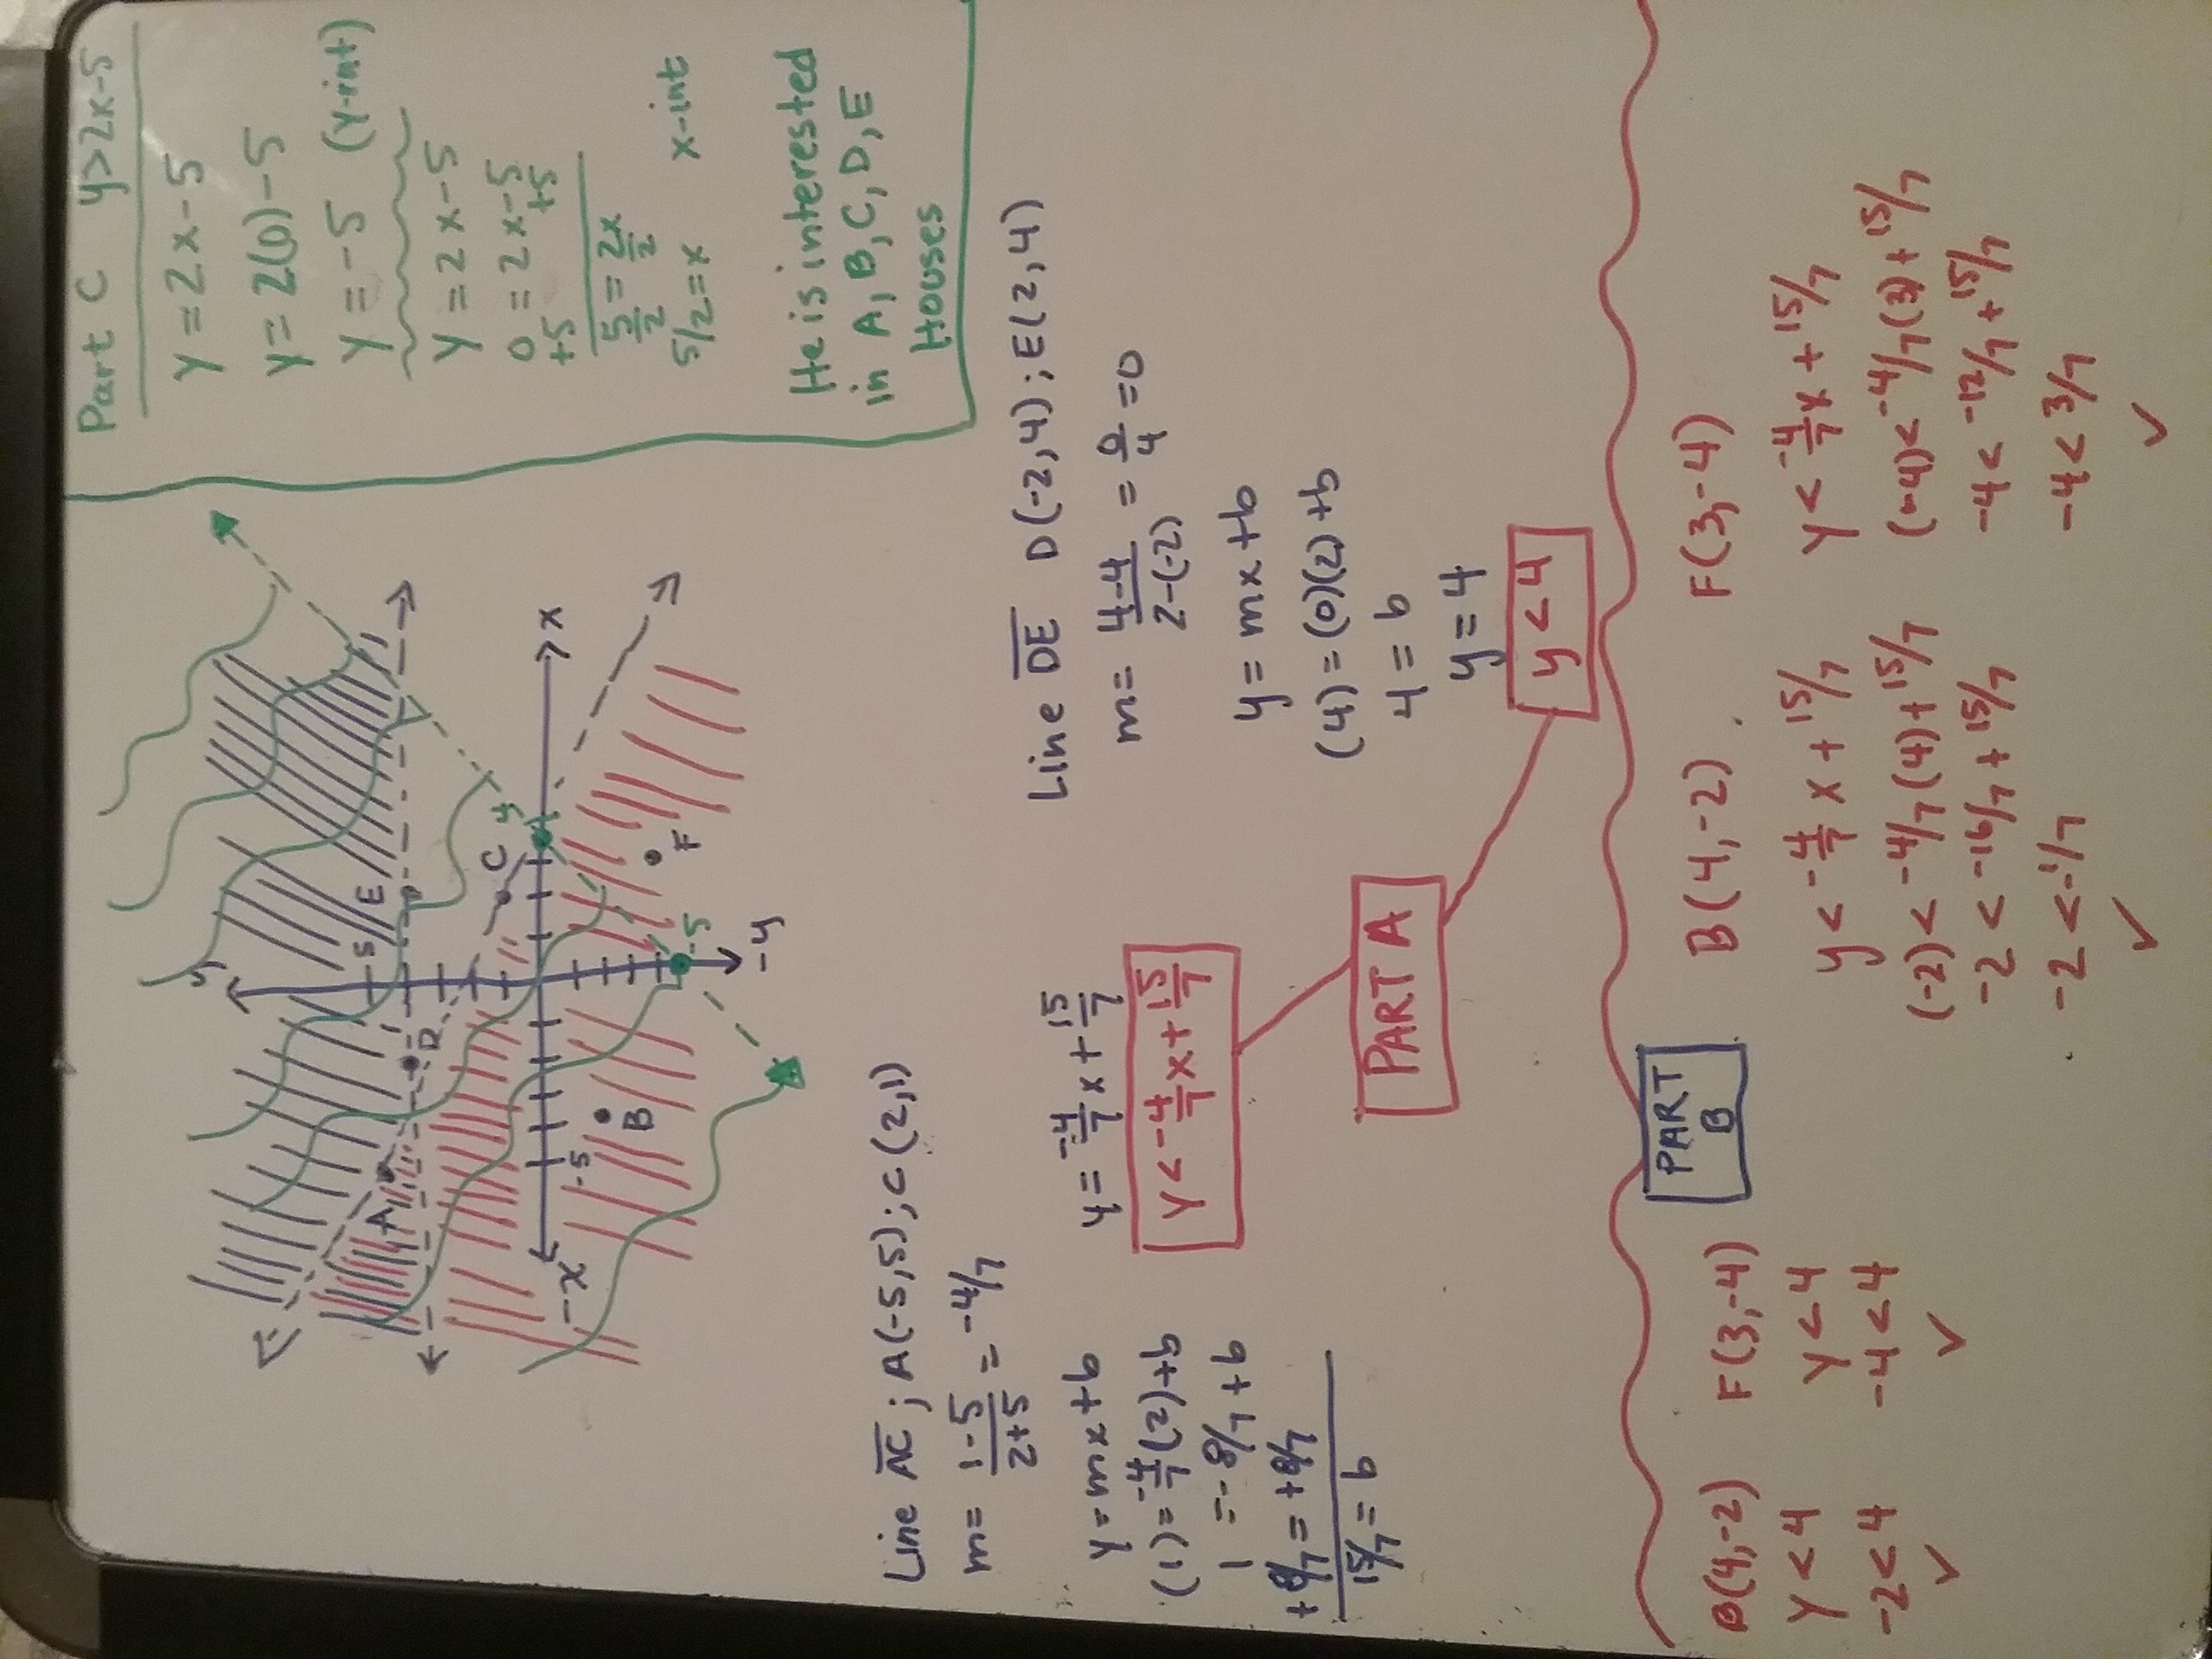 Part C y>2x-5
y = 2x-5
y = 2(0)-5
y = -5 (y-int)
y = 2x-5
0 = 2x-5
+5 +5
5/2 = 2x/2
5/2 = x x-int
He is interested
in A, B, C, D, E
Houses
y
5
E
D
A
C
4
x
-x
-5
B
F
-5
-y
Line AC ; A(-5,5) ; C(2,1)
m = 1-5/2+5 = -4/7
y = mx+b
(1) = -4/7(2)+b
1 = -8/7+b
+8/7 = +8/7
15/7 = b
y = -4/7 x + 15/7
y < -4/7 x + 15/7
PART A
Line DE D(-2,4) ; E(2,4)
m = 4-4/2-(-2) = 0/4 = 0
y = mx+b
(4) = (0)(2)+b
4 = b
y = 4
y < 4
PART
B
B(4,-2)
y < 4
-2 < 4
✓
F(3,-4)
y < 4
-4 < 4
✓
B(4,-2)
y < -4/7 x + 15/7
(-2) < -4/7(4) + 15/7
-2 < -16/7 + 15/7
-2 < -1/7
✓
F(3,-4)
y < -4/7 x + 15/7
(-4) < -4/7(3) + 15/7
-4 < -12/7 + 15/7
-4 < 3/7
✓